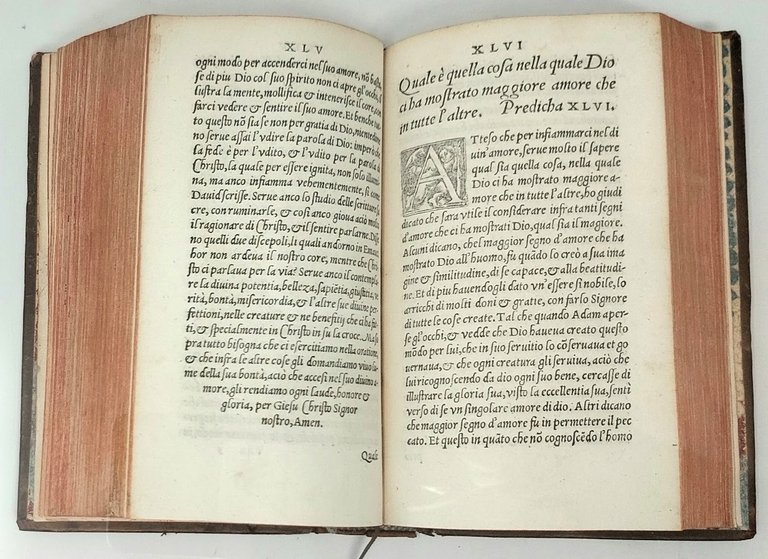 XLV
ogni modo per accenderci nel suo amore, nõ basta
se di piu Dio col suo spirito non ci apre gl'occhi, il
lustra la mente, mollifica & intenerisce il core, con
farci vedere & sentire il suo amore. Et benche tut
to questo nõ sia se non per gratia di Dio, nientedime
no serue assai l'vdire la parola di Dio: imperò che
la fede è per l'vdito, & l'vdito per la parola di
Christo, la quale per essere ignita, non solo illumi
na, ma anco infiamma vehementemente, si come
Dauid scrisse. Serue anco lo studio delle scritture sa
cre, con ruminarle, & cosi anco gioua aßiò molto
il ragionare di Christo, & il sentire parlarne. Dis
no quelli due discepoli, li quali andorno in Emaus
hor non ardeua il nostro core, mentre che Chri
sto ci parlaua per la via? Serue anco il contempla
re la diuina potentia, bellezza, sapiẽtia, giustitia, ve
rità, bontà, misericordia, & l'altre sue diuine per
fettioni, nelle creature & ne benefitij che ci ha fat
ti, & specialmente in Christo in su la croce. Ma so
pra tutto bisogna che ci esercitiamo nella oratione,
& che infra le altre cose gli domandiamo viuo lu
me della sua bontà, aciò che accesi nel suo diuino a-
more, gli rendiamo ogni laude, honore &
gloria, per Giesu Christo Signor
nostro, Amen.
Quale
XLVI
Quale è quella cosa nella quale Dio
ci ha mostrato maggiore amore che
in tutte l'altre. Predicha XLVI.
ATteso che per infiammarci nel di
uin'amore, serue molto il sapere
qual sia quella cosa, nella quale
Dio ci ha mostrato maggiore a-
more che in tutte l'altre, ho giudi
dicato che sara vtile il considerare infra tanti segni
d'amore che ci ha mostrati Dio, qual sia il magiore.
Alcuni dicano, che'l maggior segno d'amore che ha
mostrato Dio all'huomo, fu quãdo lo creò a sua ima
gine & similitudine, di se capace, & alla beatitudi-
ne. Et di piu hauendogli dato vn'essere si nobile, lo
arricchi di molti doni & gratie, con farlo Signore
di tutte le cose create. Tal che quando Adam aper-
se gl'occhi, & vedde che Dio haueua creato questo
mõdo per lui, che in suo seruitio lo cõseruaua et go
uernaua, & che ogni creatura gli seruiua, aciò che
lui ricognoscendo da dio ogni suo bene, cercasse di
illustrare la gloria sua, visto la eccellentia sua, sentì
verso di se vn singolare amore di dio. Altri dicano
che maggior segno d'amore fu in permettere il pec
cato. Et questo in quãto che nõ cognoscẽdo l'homo